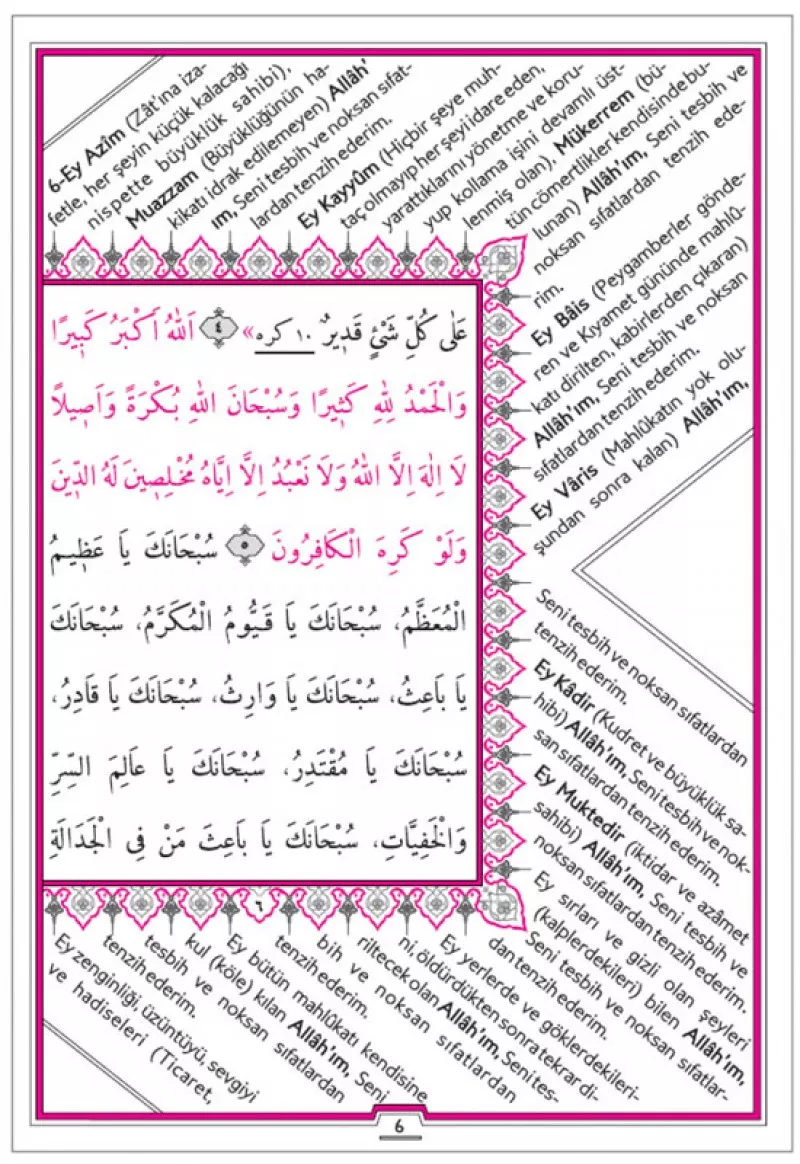 6-Ey Azîm (Zât'ına iza-
fetle, her şeyin küçük kalacağı
nispette büyüklük sahibi),
Muazzam (Büyüklüğünün ha-
kikatı idrak edilemeyen) Allâh'
ım, Seni tesbih ve noksan sıfat-
lardan tenzih ederim.
Ey Kayyûm (Hiçbir şeye muh-
taç olmayıp her şeyi idare eden,
yarattıklarını yönetme ve koru-
yup kollama işini devamlı üst-
lenmiş olan), Mükerrem (bü-
tün cömertlikler kendisinde bu-
lunan) Allâh'ım, Seni tesbih ve
noksan sıfatlardan tenzih ede-
rim.
Ey Bâis (Peygamberler gönde-
ren ve Kıyamet gününde mahlû-
katı dirilten, kabirlerden çıkaran)
Allâh'ım, Seni tesbih ve noksan
sıfatlardan tenzih ederim.
Ey Vâris (Mahlûkatın yok olu-
şundan sonra kalan) Allâh'ım,
عَلٰى كُلِّ شَيْئٍ قَد۪يرٌ ١٠ كره» ٤ اَللّٰهُ اَكْبَرُ كَب۪يرًا
وَالْحَمْدُ لِلّٰهِ كَث۪يرًا وَسُبْحَانَ اللّٰهِ بُكْرَةً وَاَص۪يلًا
لَا اِلٰهَ اِلَّا اللّٰهُ وَلَا نَعْبُدُ اِلَّا اِيَّاهُ مُخْلِص۪ينَ لَهُ الدّ۪ينَ
وَلَوْ كَرِهَ الْكَافِرُونَ ٥ سُبْحَانَكَ يَا عَظ۪يمُ
الْمُعَظَّمُ، سُبْحَانَكَ يَا قَيُّومُ الْمُكَرَّمُ، سُبْحَانَكَ
يَا بَاعِثُ، سُبْحَانَكَ يَا وَارِثُ، سُبْحَانَكَ يَا قَادِرُ،
سُبْحَانَكَ يَا مُقْتَدِرُ، سُبْحَانَكَ يَا عَالِمَ السِّرِّ
وَالْخَفِيَّاتِ، سُبْحَانَكَ يَا بَاعِثَ مَنْ فِى الْجَدَالَةِ
٦
Seni tesbih ve noksan sıfatlardan
tenzih ederim.
Ey Kâdir (Kudret ve büyüklük sa-
hibi) Allâh'ım, Seni tesbih ve nok-
san sıfatlardan tenzih ederim.
Ey Muktedir (iktidar ve azâmet
sahibi) Allâh'ım, Seni tesbih ve
noksan sıfatlardan tenzih ederim.
Ey sırları ve gizli olan şeyleri
(kalplerdekileri) bilen Allâh'ım,
Seni tesbih ve noksan sıfatlar-
dan tenzih ederim.
Ey yerlerde ve göklerdekileri-
ni, öldürdükten sonra tekrar di-
riltecek olan Allâh'ım, Seni tes-
bih ve noksan sıfatlardan
tenzih ederim.
Ey bütün mahlûkatı kendisine
kul (köle) kılan Allâh'ım, Seni
tesbih ve noksan sıfatlardan
tenzih ederim.
Ey zenginliği, üzüntüyü, sevgiyi
ve hadiseleri (Ticaret,
6